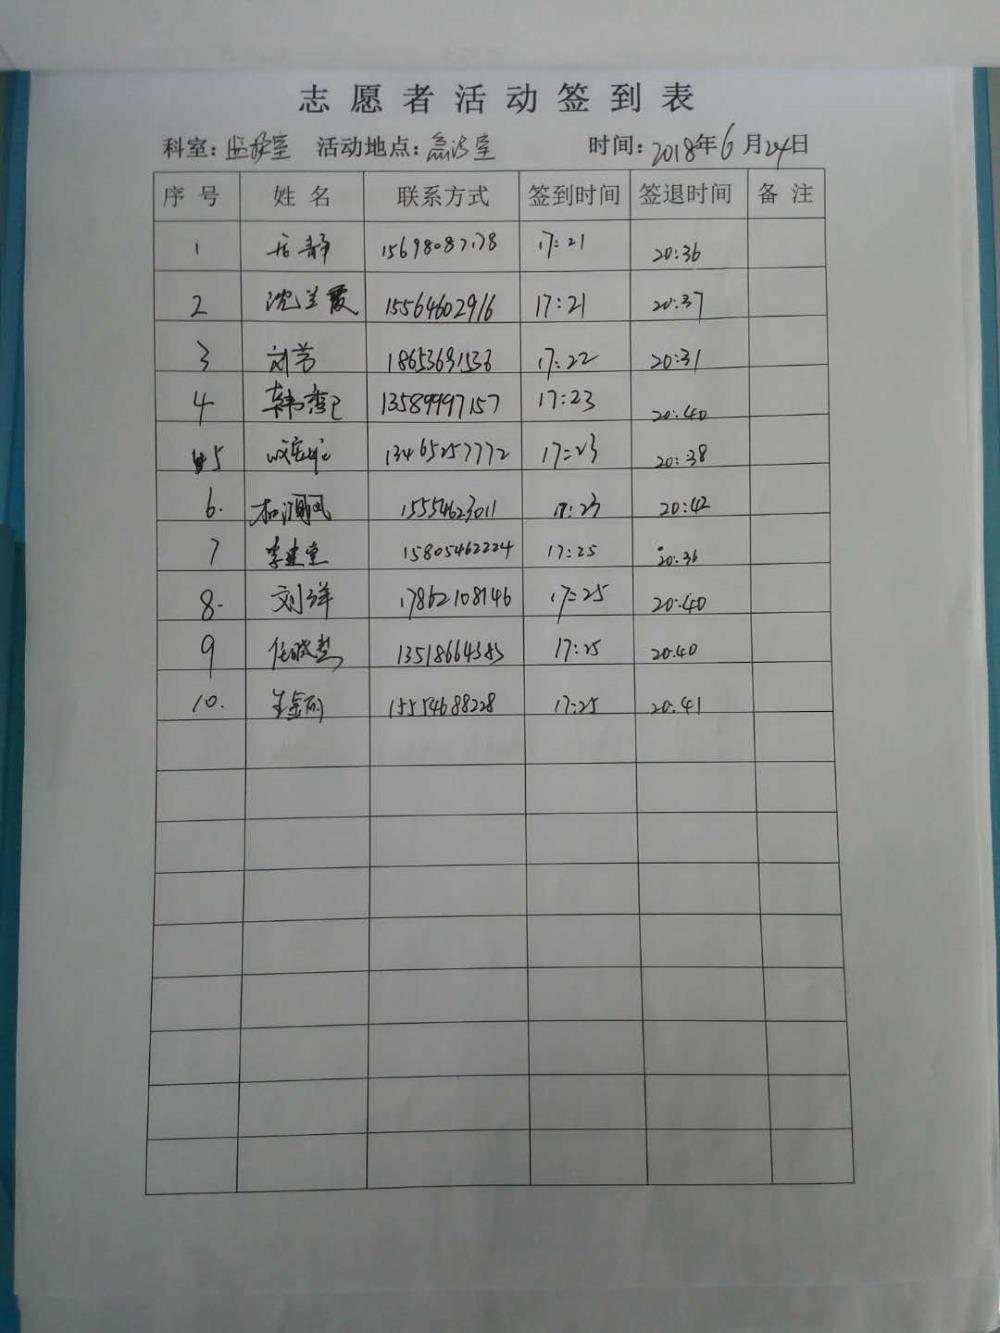 志愿者活动签到表
科室: 活动地点: 时间: 2018年6月24日
序号 姓名 联系方式 签到时间 签退时间 备注
1 静 17:21 20:36
2 沈兰霞 15564602916 17:21 20:37
3 刘芳 17:22 20:31
4 13589997157 17:23 20:40
5 13465257772 17:23 20:38
6. 15554623011 17:23 20:42
7 李建堂 15805462224 17:25 20:36
8. 刘洋 17862108146 17:25 20:40
9 任晓 17:25 20:40
10. 15554688228 17:25 20:41